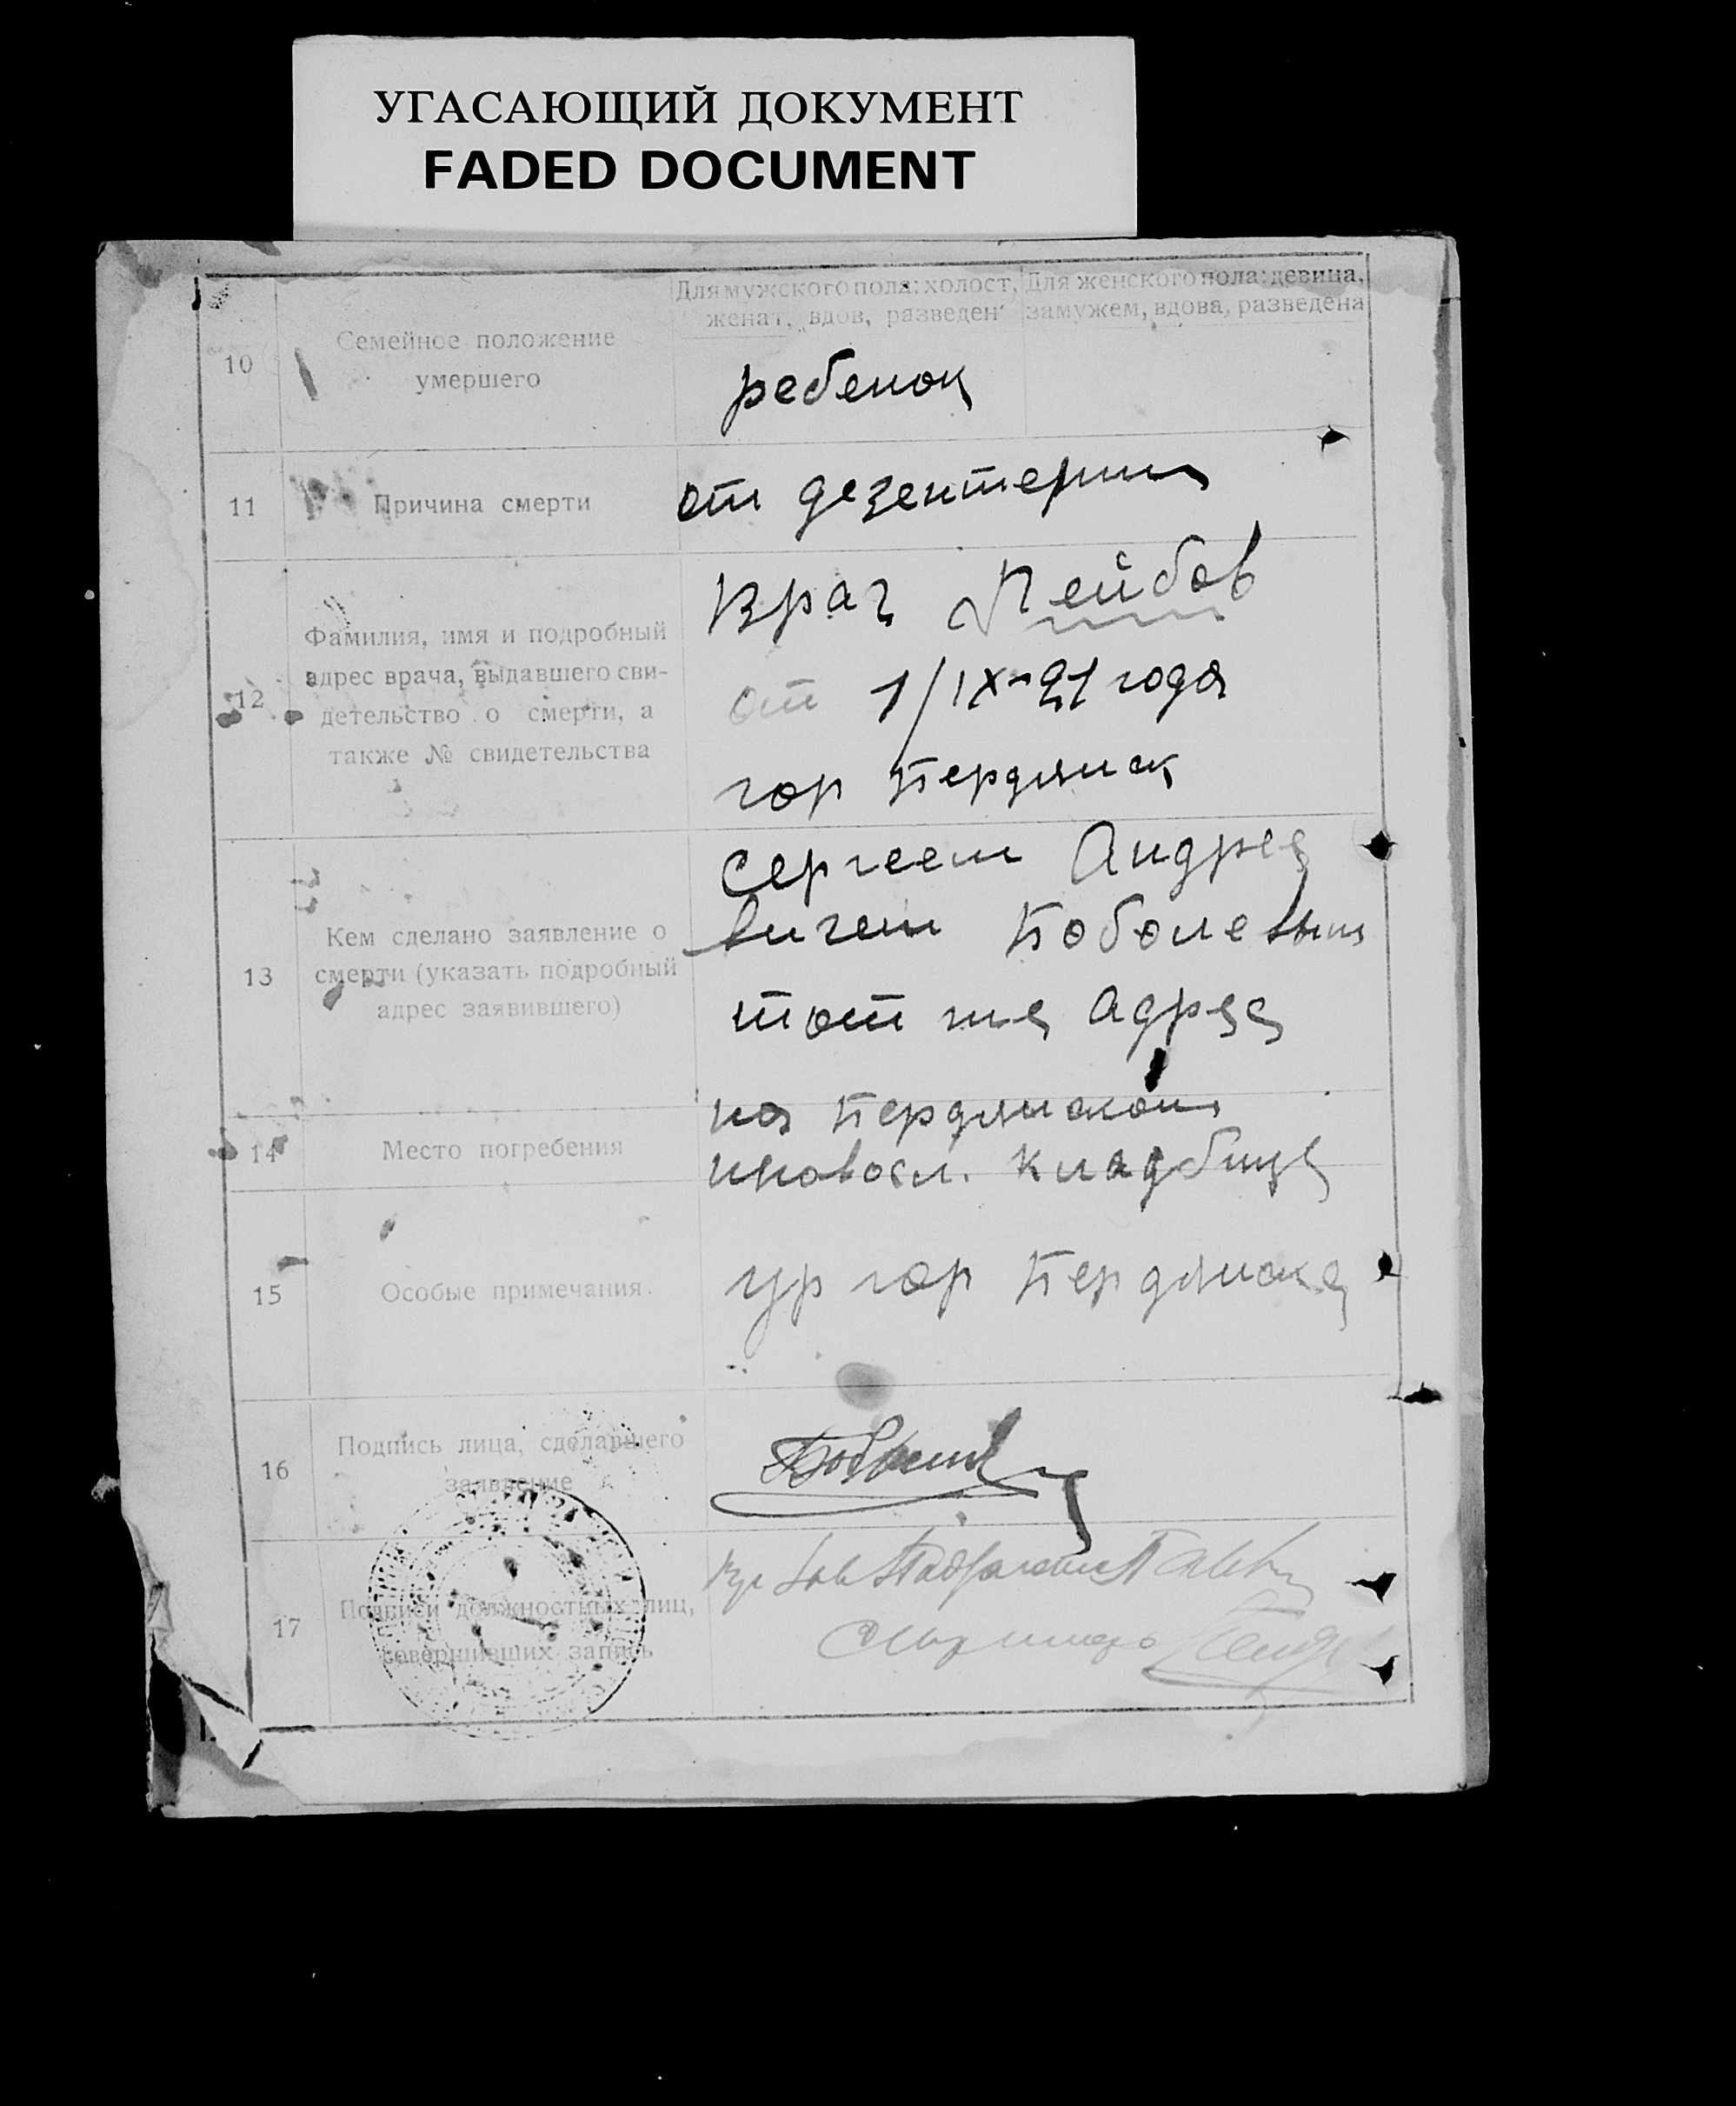 УГАСАЮЩИЙ ДОКУМЕНТ
FADED DOCUMENT
10
Семейное положение
умершего
Для мужского пола: холост,
женат, вдов, разведен
Для женского пола: девица,
замужем, вдова, разведена
ребенок
11
Причина смерти
от дезентерии
12
Фамилия, имя и подробный
адрес врача, выдавшего сви-
детельство о смерти, а
также № свидетельства
Врач Лейбов
от 1/IX-21 года
гор Бердянск
13
Кем сделано заявление о
смерти (указать подробный
адрес заявившего)
Сергеем Андрее
вичем
тот же адрес
14
Место погребения
на Бердянском
кладбище
15
Особые примечания.
гор Бердянска
16
Подпись лица, сделавшего
заявление
17
Подписи должностных лиц,
совершивших запись